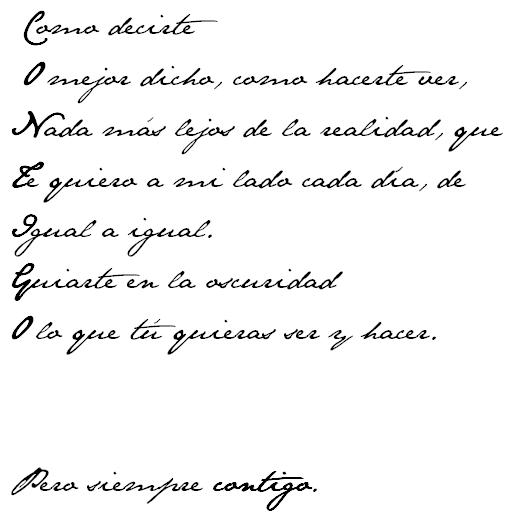 Como decirte
O mejor dicho, como hacerte ver,
Nada más lejos de la realidad, que
Te quiero a mi lado cada día, de
Igual a igual.
Guiarte en la oscuridad
O lo que tú quieras ser y hacer.
Pero siempre contigo.